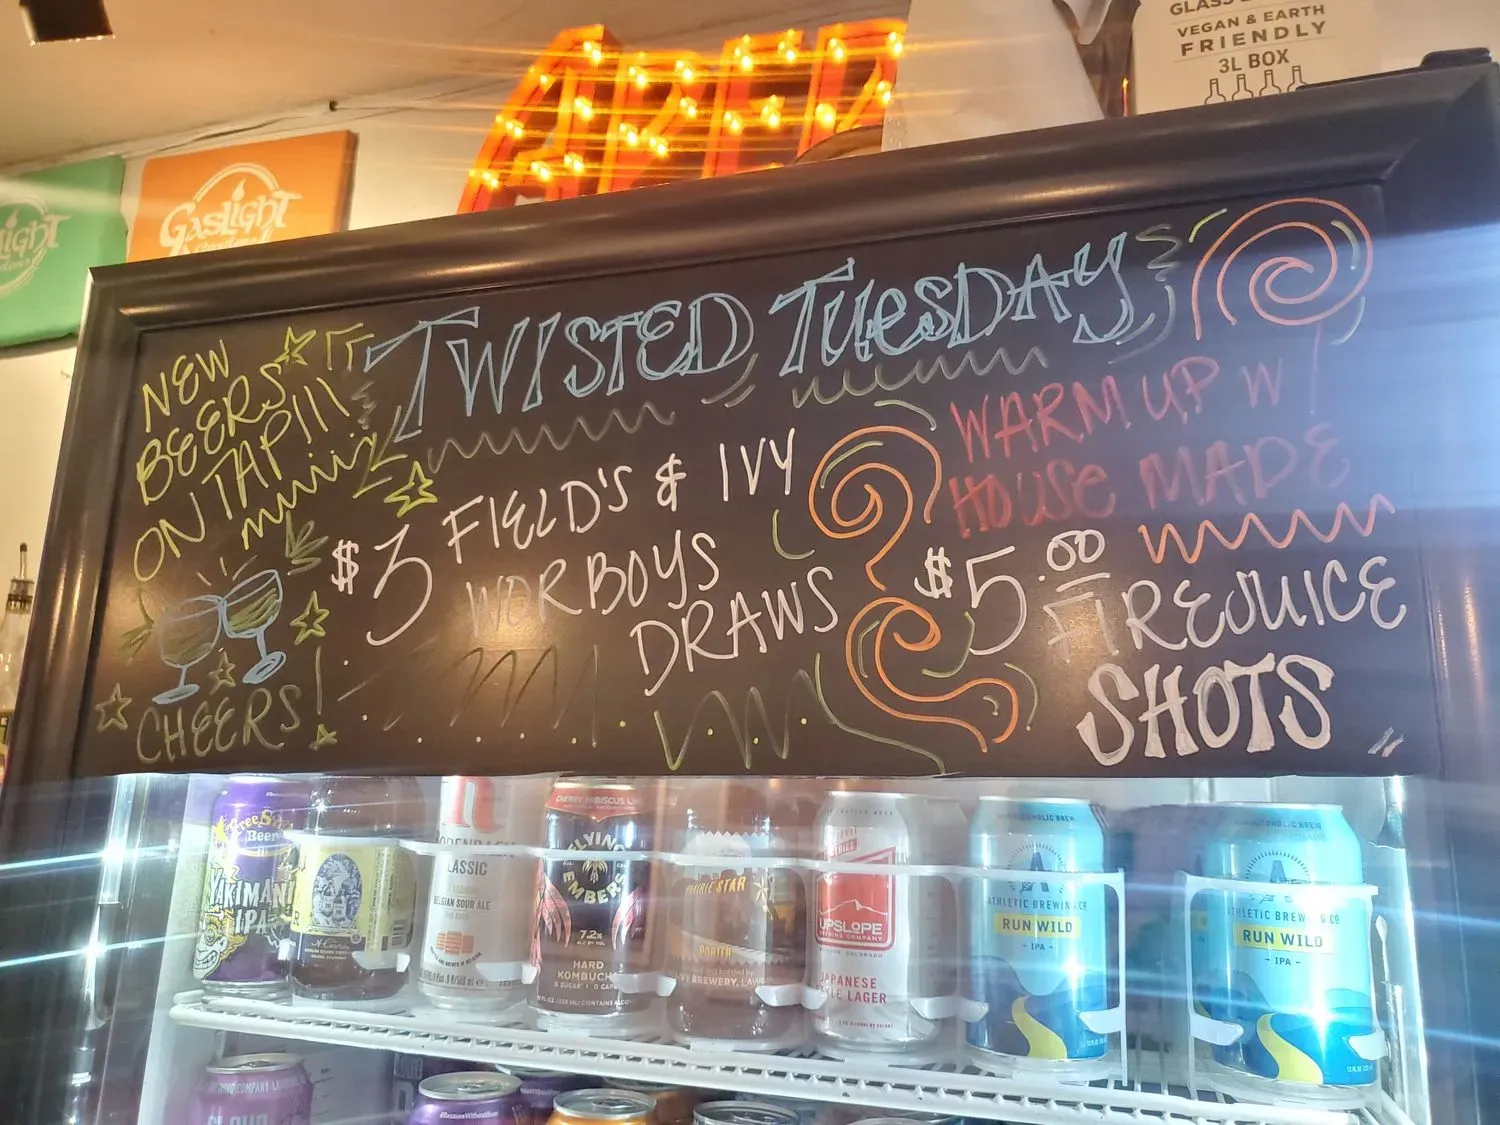 GLASS
VEGAN & EARTH
FRIENDLY
3L BOX
GASLIGHT
LIGHT
TWISTED TUESDAY
NEW
BEERS
ON TAP!!!
CHEERS!
$3 FIELD'S & IVY
WORBOYS
DRAWS
WARM UP W/
HOUSE MADE
$5.00 FIREJUICE
SHOTS
Beer
YAKIMANI
IPA
CLASSIC
BELGIAN SOUR ALE
CHERRY HIBISCUS
FLYING
EMBERS
7.2%
ALC BY VOL
HARD
KOMBUCHA
0 SUGAR
PRAIRIE STAR
PORTER
BREWERY, LAW
UPSLOPE
BREWING COMPANY
JAPANESE
STYLE LAGER
ATHLETIC BREWING CO
RUN WILD
- IPA -
ATHLETIC BREWING CO
RUN WILD
- IPA -
12 FL OZ
#BecauseWithout